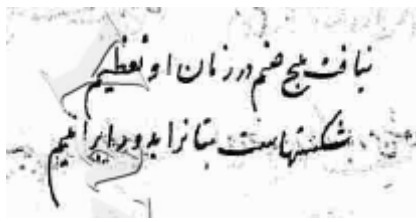 نیافت هیچ صنم در زمان او تعظیم
شکستهاست بتانرا بدور ابراهیم